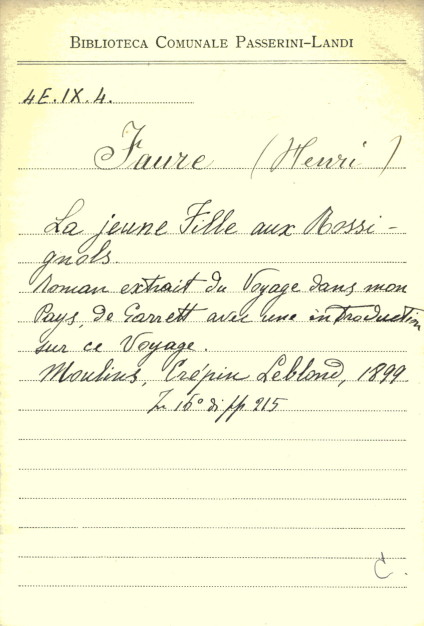 BIBLIOTECA COMUNALE PASSERINI-LANDI
4E.IX.4.
Faure (Henri)
La jeune Fille aux Rossi-
gnols.
Roman extrait du Voyage dans mon
Pays, de Garrett avec une introduction
sur ce Voyage.
Moulins, Crépin Leblond, 1899
In 16° di pp 215
C.